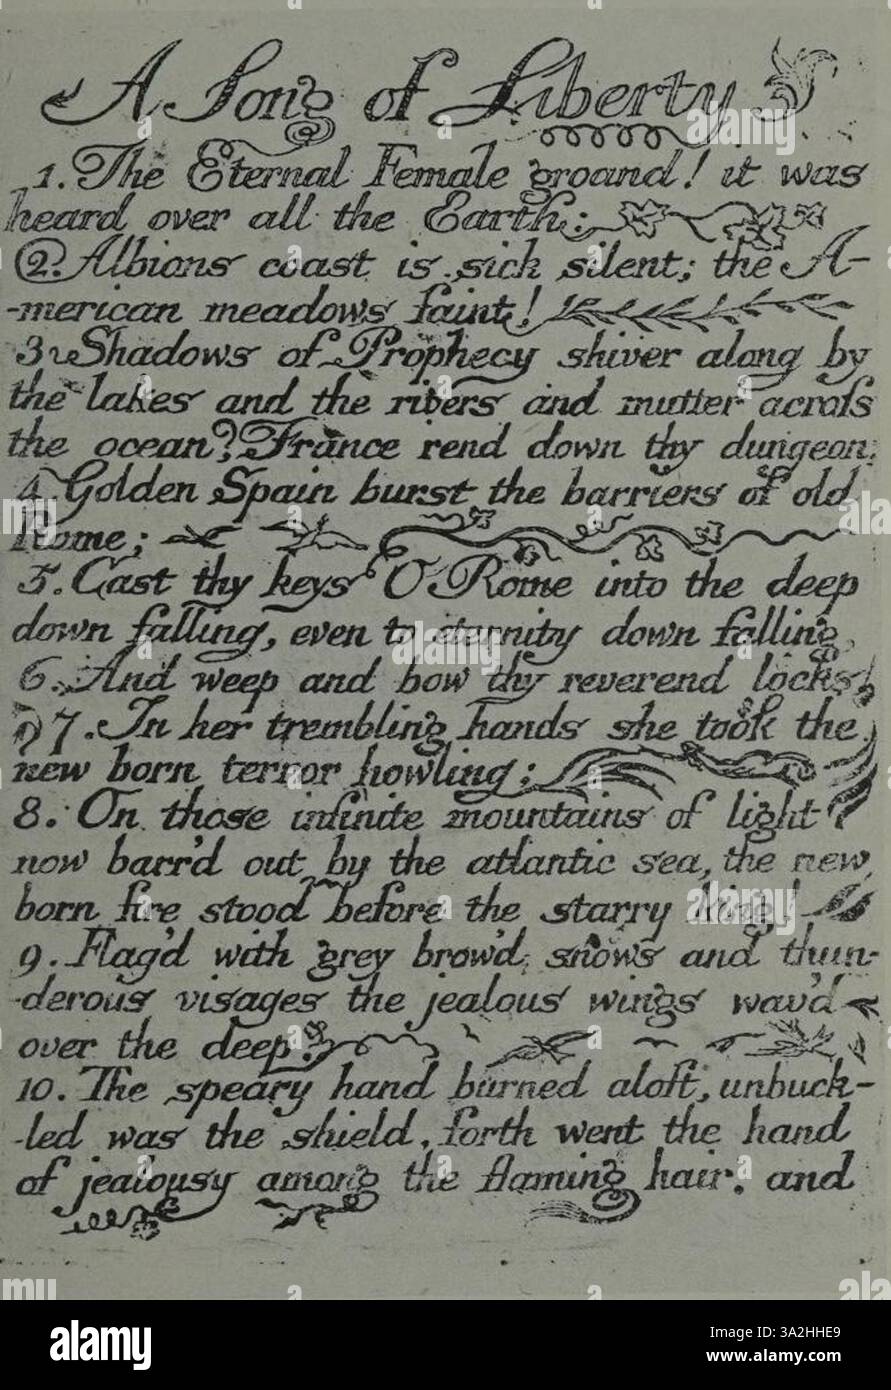 A Song of Liberty
1. The Eternal Female groand! it was
heard over all the Earth:
2. Albions coast is sick silent; the A-
-merican meadows faint!
3 Shadows of Prophecy shiver along by
the lakes and the rivers and mutter acroſs
the ocean? France rend down thy dungeon;
4. Golden Spain burst the barriers of old
Rome;
5. Cast thy keys O Rome into the deep
down falling, even to eternity down falling,
6. And weep and bow thy reverend locks!
7. In her trembling hands she took the
new born terror howling;
8. On those infinite mountains of light
now barr'd out by the atlantic sea, the new
born fire stood before the starry king!
9. Flag'd with grey brow'd snows and thun-
-derous visages the jealous wings wav'd
over the deep.
10. The speary hand burned aloft, unbuck-
-led was the shield, forth went the hand
of jealousy among the flaming hair, and
alamy
Image ID: 3A2HHE9
www.alamy.com